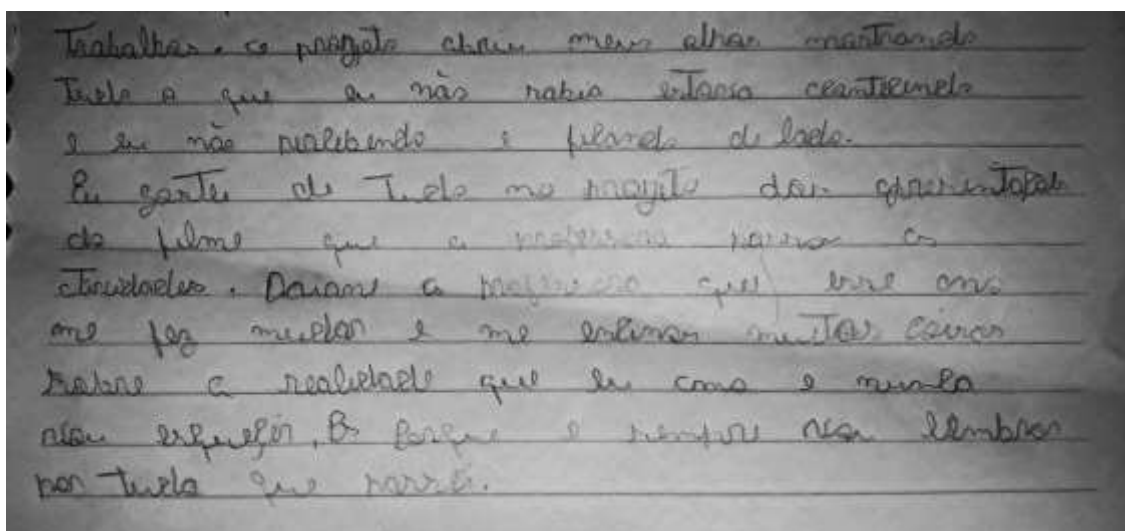 Trabalhar. o projeto abriu meus olhos mostrando
Tudo o que eu não sabia estava acontecendo
e eu não percebendo e ficando de lado.
Eu gostei de Tudo no projeto das apresentação
do filme que a professora passava as
atividades. Daiane a professora que esse ano
me fez mudar e me ensinar muitas coisas
sobre a realidade que eu amo e nunca
vou esquecer, porque e sempre vou lembrar
por tudo que passei.